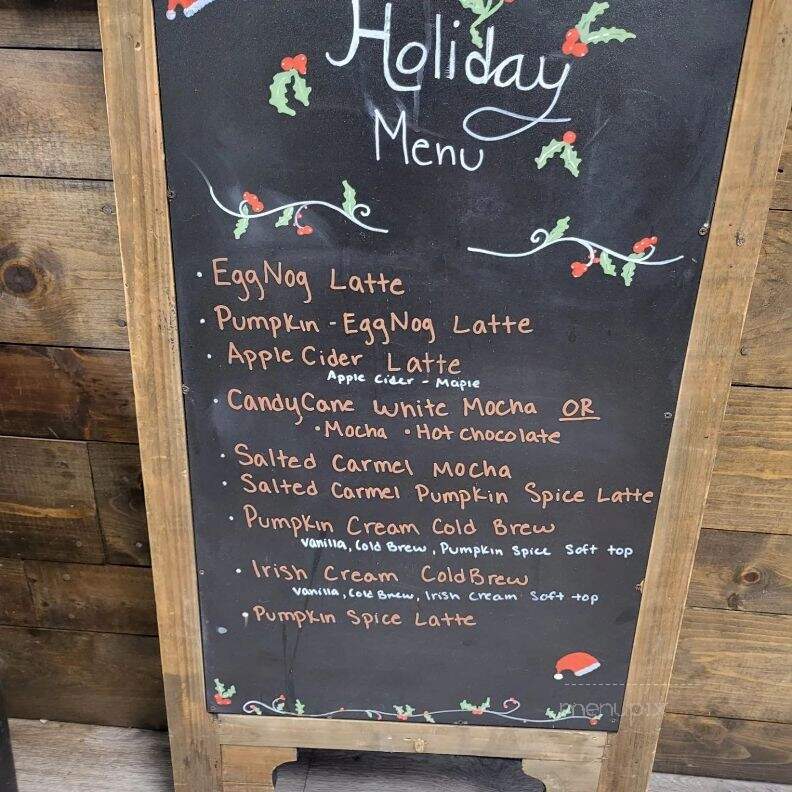 Holiday
Menu
• EggNog Latte
• Pumpkin - EggNog Latte
• Apple Cider Latte
Apple Cider - Maple
• CandyCane White Mocha OR
• Mocha • Hot chocolate
• Salted Carmel Mocha
• Salted Carmel Pumpkin Spice Latte
• Pumpkin Cream Cold Brew
Vanilla, Cold Brew, Pumpkin Spice Soft top
• Irish Cream ColdBrew
Vanilla, Cold Brew, Irish Cream Soft top
• Pumpkin Spice Latte
menupix